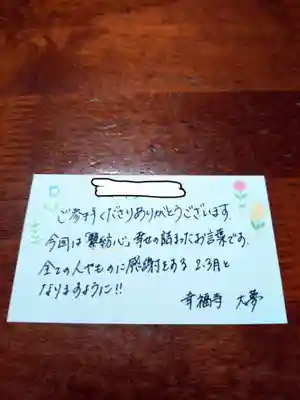 ご参拝くださりありがとうございます。
今回は「繋紡心」幸せの詰まったお言葉です。
全ての人やものに感謝をする 2.3月と
なりますように!!
幸福寺 大夢